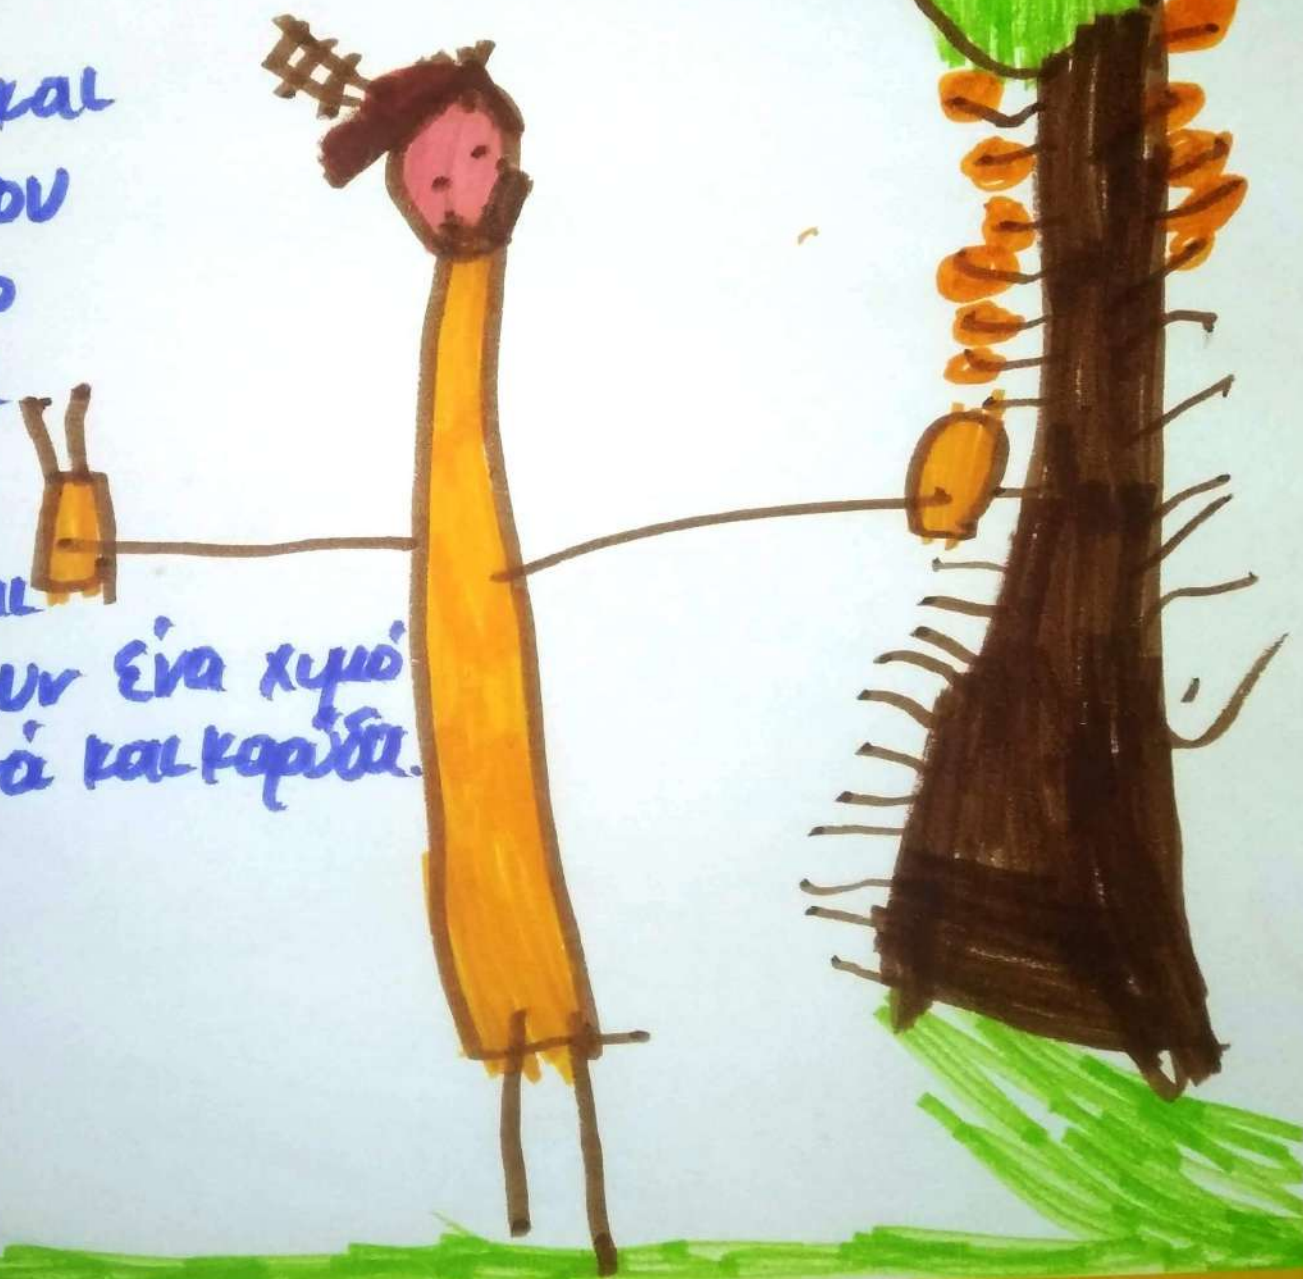 και
ου
ο
αι
υν ένα χυμό
ά και καρύδα.